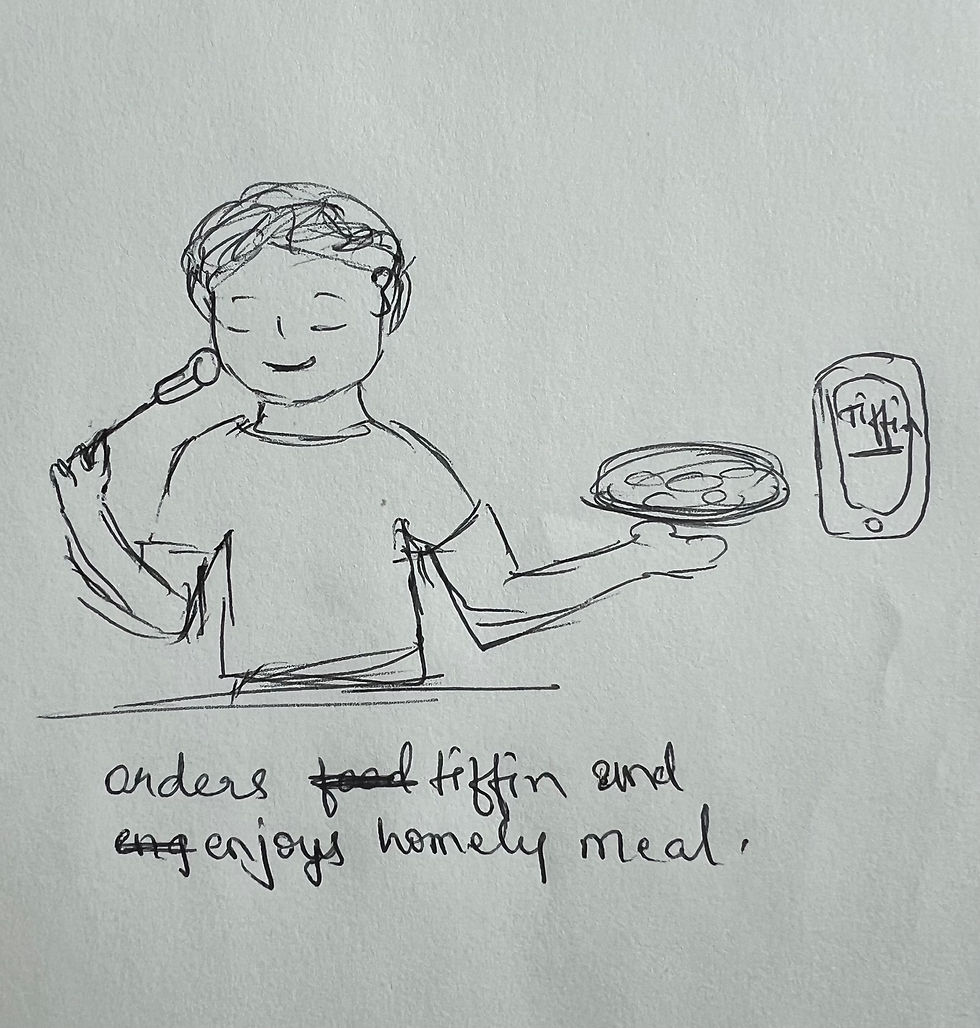 Tiffin
orders food tiffin and
eng enjoys homely meal.